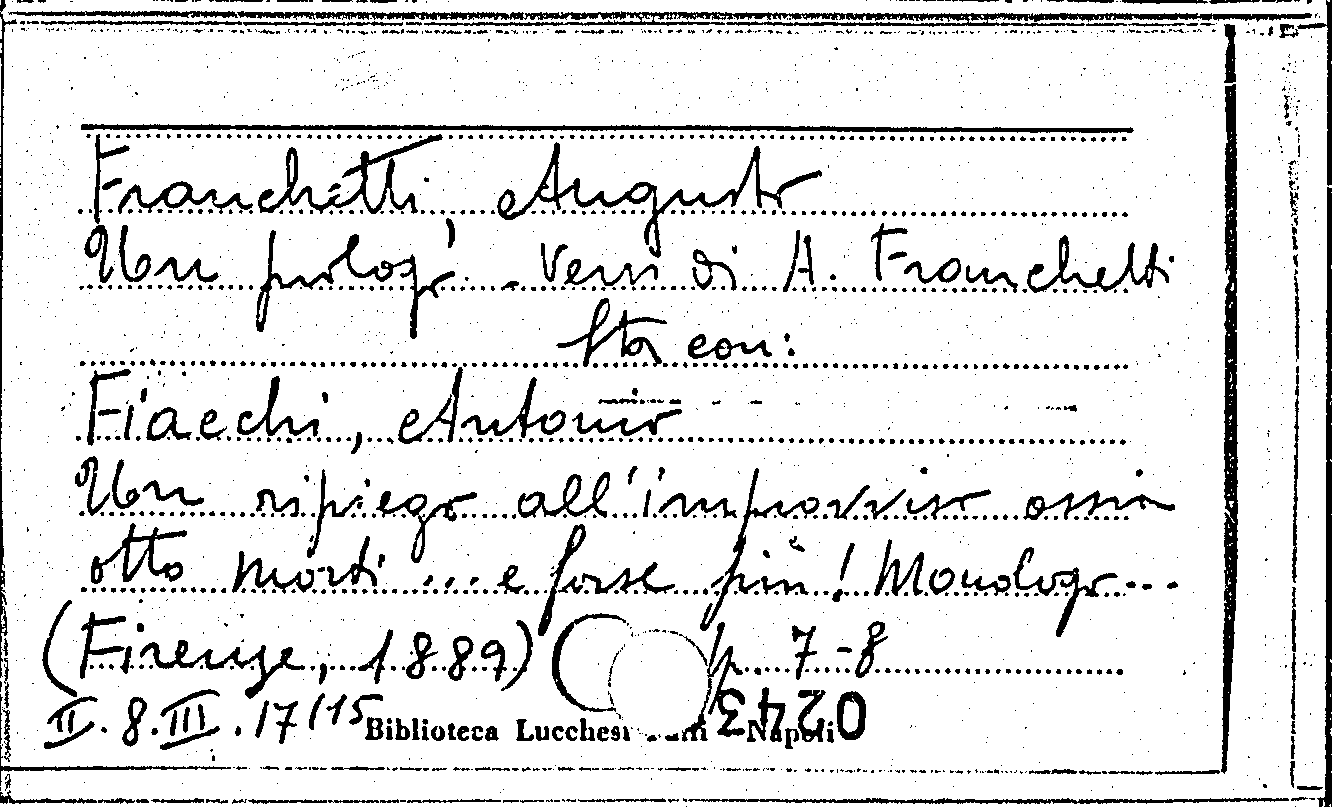 Franchetti, Augusto
Un prologo. Versi di A. Franchetti
Sta con:
Fiacchi, Antonio
Un ripiego all'improvviso ossia
otto morti ... e forse più! Monologo ...
(Firenze, 1889) p. 7-8
II. 8. III. 17/15 Biblioteca Lucchesi Napoli
0243